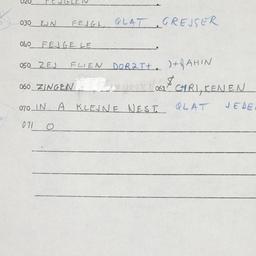 020 FEJGLEN
030 IJN FEJGL GLAT GREJSER
040 FEJGELE
050 ZEJ FLIEN DORTT.
060 ZINGEN 061 CHRI,KENEN
070 IN A KLEJNE NEST. GLAT JEDE
071 0